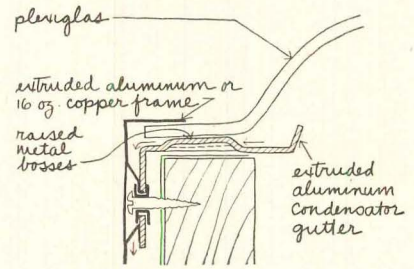 plexiglas
extruded aluminum or
16 oz. copper frame
raised
metal
bosses
extruded
aluminum
condensator
gutter